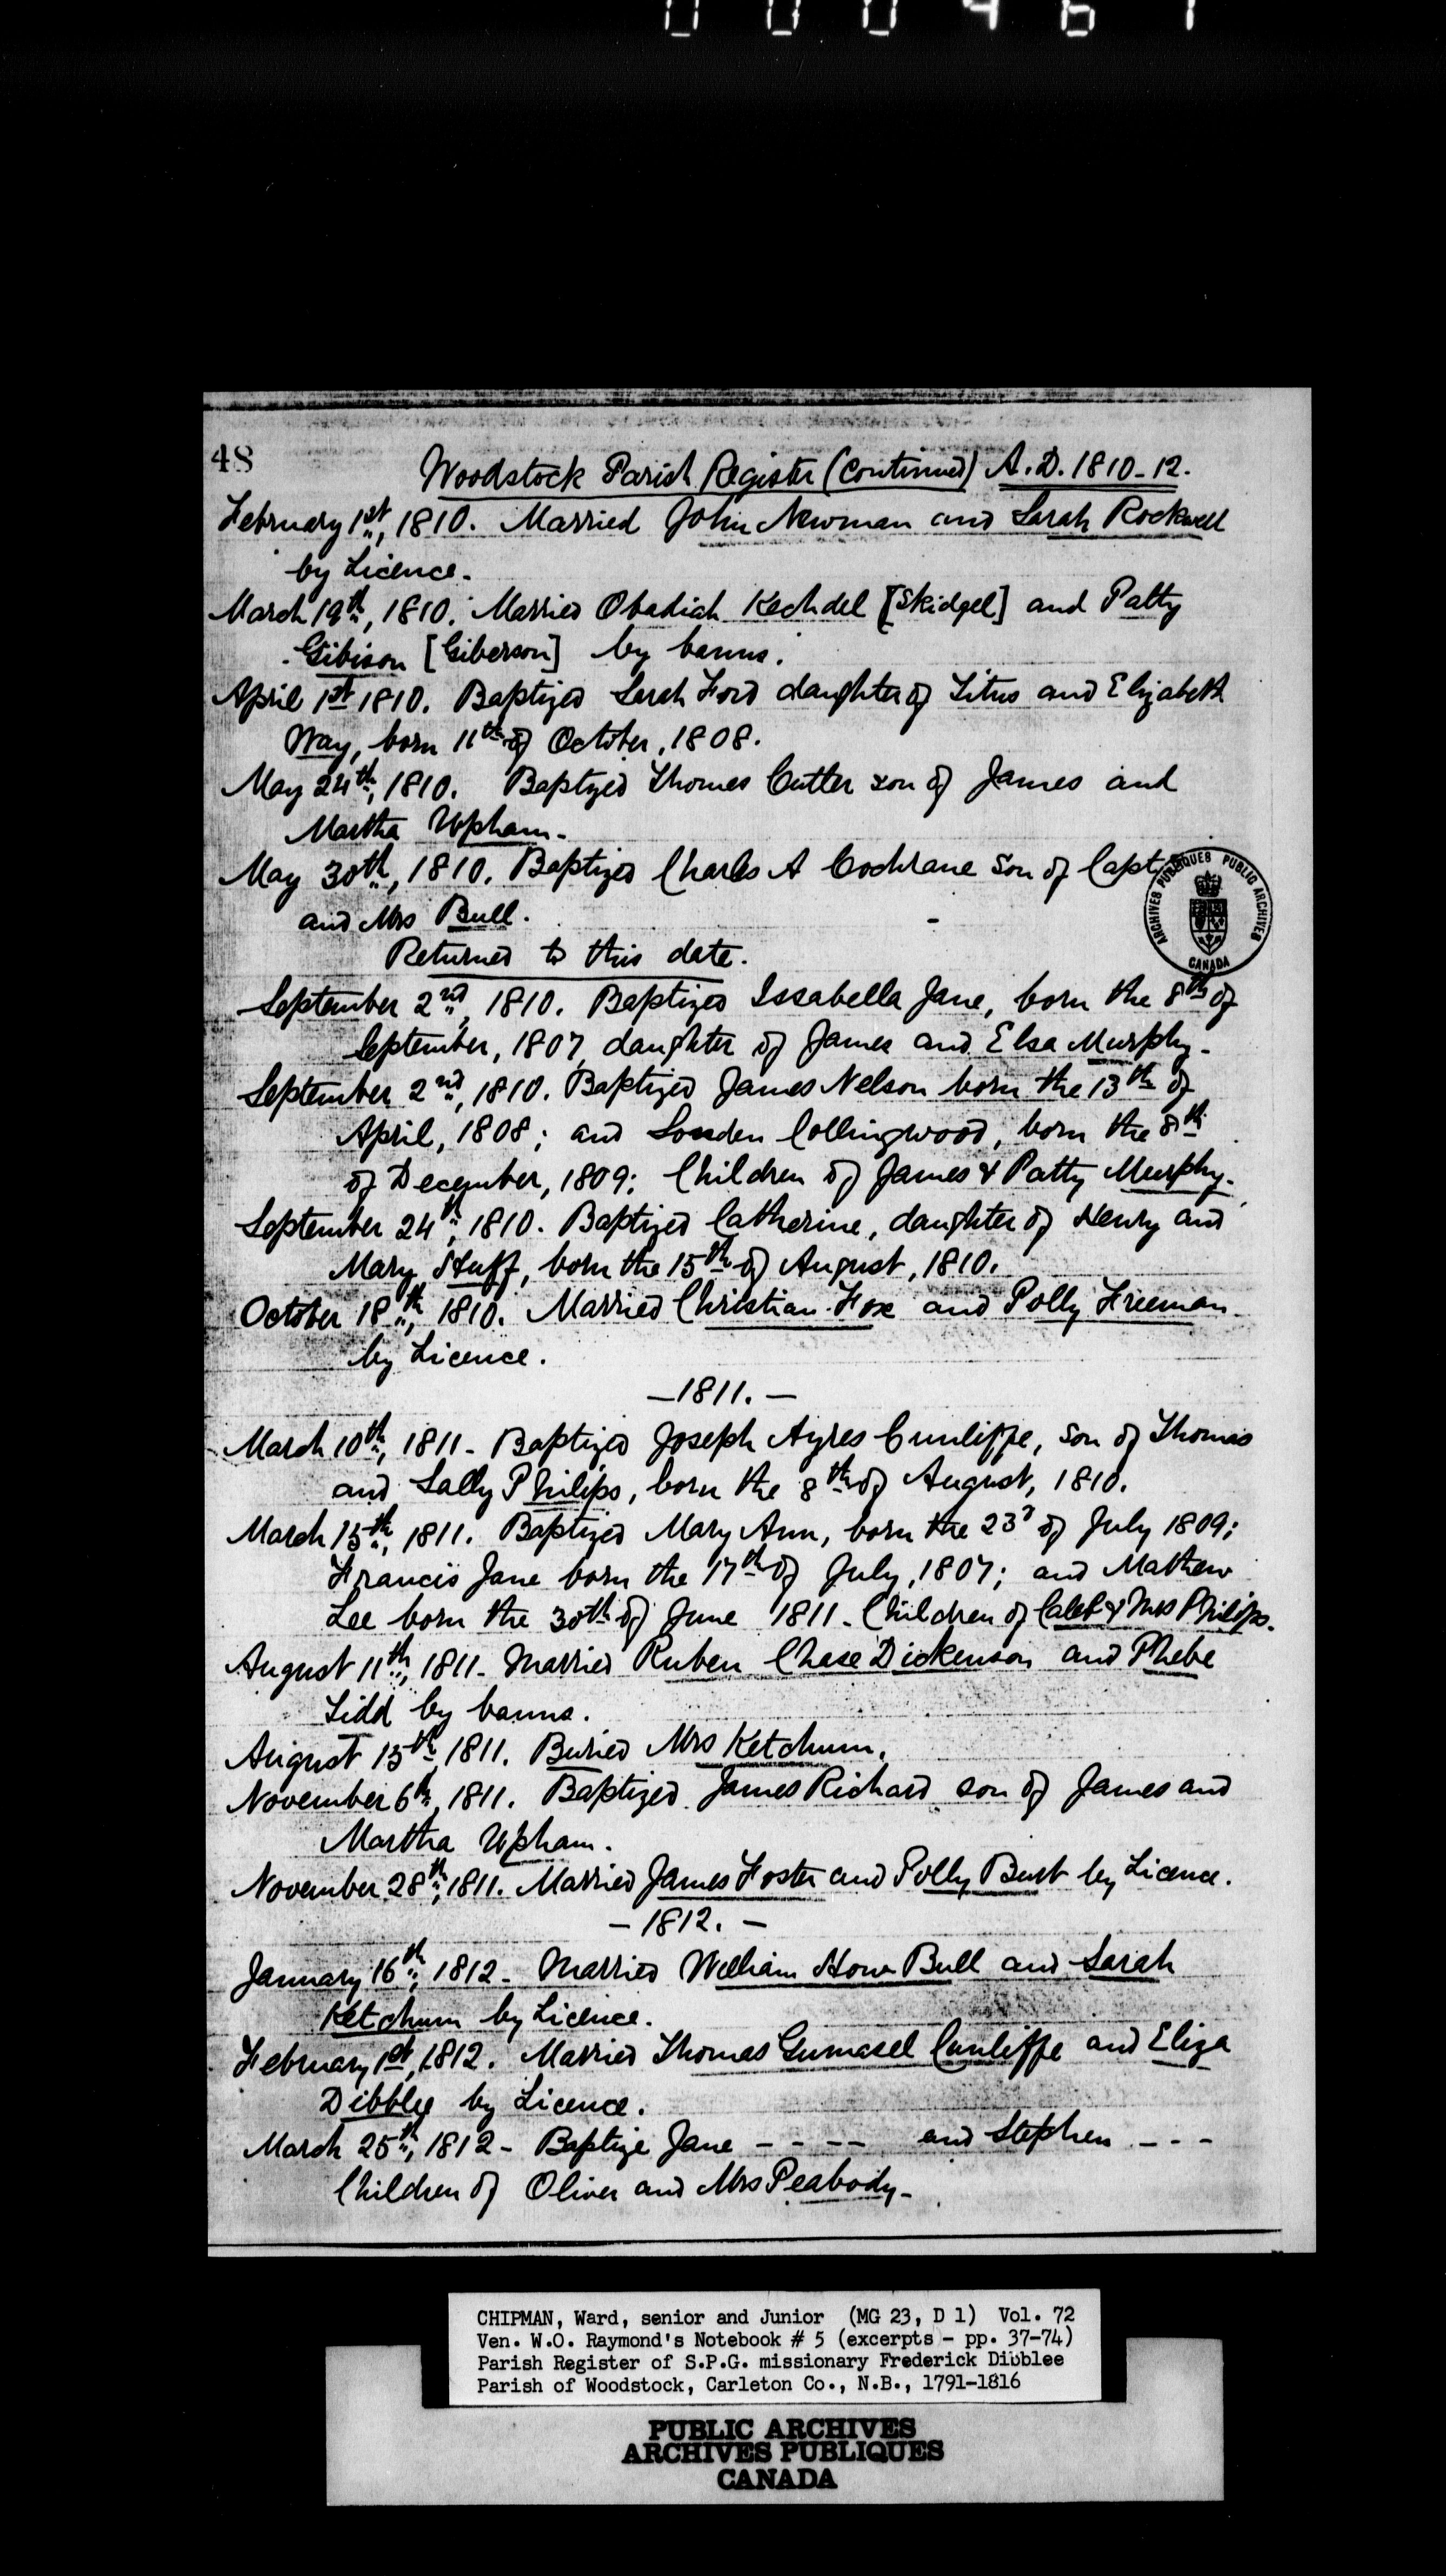 000467
48
Woodstock Parish Register (Continued) A.D. 1810-12.
February 1st, 1810. Married John Newman and Sarah Rockwell
by Licence.
March 19th, 1810. Married Obadiah Kechdel [Skidgel] and Patty
Gibison [Giberson] by banns.
April 1st 1810. Baptized Sarah Ford daughter of Titus and Elizabeth
Way, born 11th of October, 1808.
May 24th, 1810. Baptized Thomas Cutter son of James and
Martha Upham.
May 30th, 1810. Baptized Charles A Cochrane Son of Capt
and Mrs Bull.
ARCHIVES PUBLIQUES PUBLIC ARCHIVES
CANADA
Returned to this date.
September 2nd, 1810. Baptized Issabella Jane, born the 8th of
September, 1807, daughter of James and Elsa Murphy.
September 2nd, 1810. Baptized James Nelson born the 13th of
April, 1808; and Louden Collingwood, born the 8th
of December, 1809; Children of James & Patty Murphy.
September 24th, 1810. Baptized Catherine, daughter of Henry and
Mary Stuff, born the 15th of August, 1810.
October 18th, 1810. Married Christian Fox and Polly Freeman
by Licence.
-1811.-
March 10th, 1811 - Baptized Joseph Ayres Cunliffe, son of Thomas
and Sally Philips, born the 8th of August, 1810.
March 15th, 1811. Baptized Mary Ann, born the 23d of July 1809;
Francis Jane born the 17th of July, 1807; and Mathew
Lee born the 30th of June 1811 - Children of Caleb & Mrs Philips.
August 11th, 1811 - Married Ruben Chase Dickenson and Phebe
Tidd by banns.
August 15th 1811. Buried Mrs Ketchum.
November 6th, 1811. Baptized James Richard son of James and
Martha Upham.
November 28th, 1811. Married James Foster and Polly Burt by Licence.
- 1812. -
January 16th, 1812 - Married William Howe Bull and Sarah
Ketchum by Licence.
February 1st, 1812. Married Thomas Gumasel Cunliffe and Eliza
Dibblee by Licence.
March 25th, 1812 - Baptize Jane - - - - and Stephen - - -
Children of Oliver and Mrs Peabody -
CHIPMAN, Ward, senior and Junior (MG 23, D 1) Vol. 72
Ven. W.O. Raymond's Notebook # 5 (excerpts - pp. 37-74)
Parish Register of S.P.G. missionary Frederick Dibblee
Parish of Woodstock, Carleton Co., N.B., 1791-1816
PUBLIC ARCHIVES
ARCHIVES PUBLIQUES
CANADA